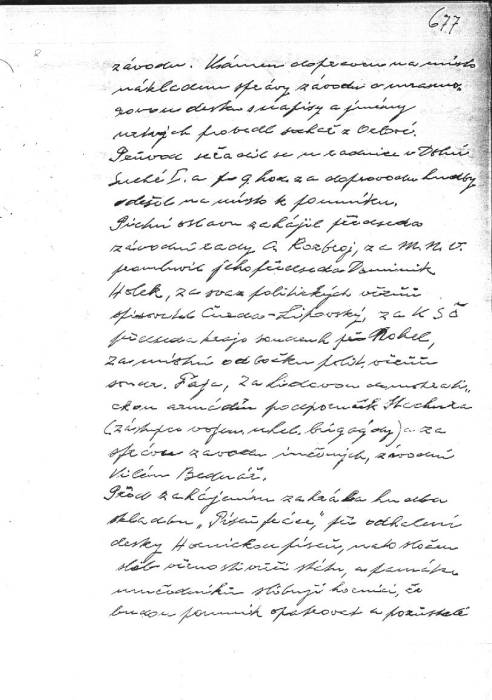 677
závodu. Kámen dopraven na místo
nákladem správy závodu a mramo-
rovou desku s nápisy a jmény
mrtvých provedl sochař z Orlové.
Průvod seřadil se u radnice v Dolní
Suché I. a po 9 hod. za doprovodu hudby
odešel na místo k pomníku.
Pietní oslavu zahájil předseda
závodní rady A. Rozbroj, za M.N.V.
promluvil jeho předseda Dominik
Holek, za svaz politických vězňů
spisovatel Čmeda-Lipovský, za KSČ
předseda kraj. soudruh Nohel,
za místní odbočku polit. vězňů
soudr. Fája, za lidovou demokrati-
ckou armádu podporučík Stachura
(zástupce vojen. uhel. brigády) a za
správu závodu závodní
Vilém Bednář.
Před zahájením zahrála hudba
skladbu „Píseň práce", při odhalení
desky Hornickou píseň, nato složen
slib věrnosti vůči státu, a památce
umučedníků slibují horníci, že
budou pomník opatrovat a pozůstalé